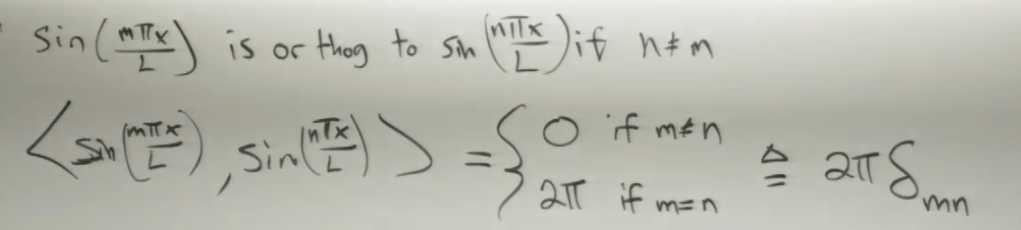 sin(mπx/L) is orthog to sin(nπx/L) if n≠m
<sin(mπx/L), sin(nπx/L)> = { 0 if m≠n 2π if m=n ≜ 2π δ_mn